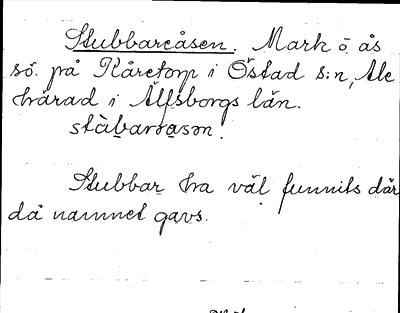 Stubbareåsen. Mark o. ås
sö. på Kåretorp i Östad s:n, Ale
härad i Älfsborgs län.
stàbaråsən.
Stubbar ha väl funnits där
då namnet gavs.